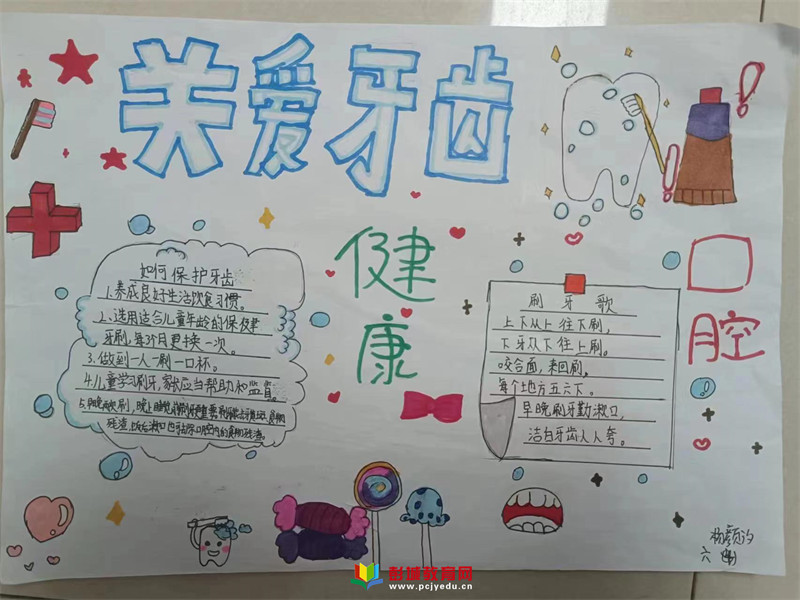 关爱牙齿
健康
口腔
如何保护牙齿
1.养成良好生活饮食习惯。
2.选用适合儿童年龄的保健
牙刷,每3个月更换一次。
3.做到一人一刷一口杯。
4.儿童学习刷牙,家长应当帮助和监督。
5.早晚刷,晚上睡觉前刷
残渣,
口腔内的食物残渣。
刷牙歌
上牙从上往下刷,
下牙从下往上刷。
咬合面,来回刷。
每个地方五六下。
早晚刷牙勤漱口,
洁白牙齿人人夸。
杨颜汐
六
彭城教育网
www.pcjyedu.cn